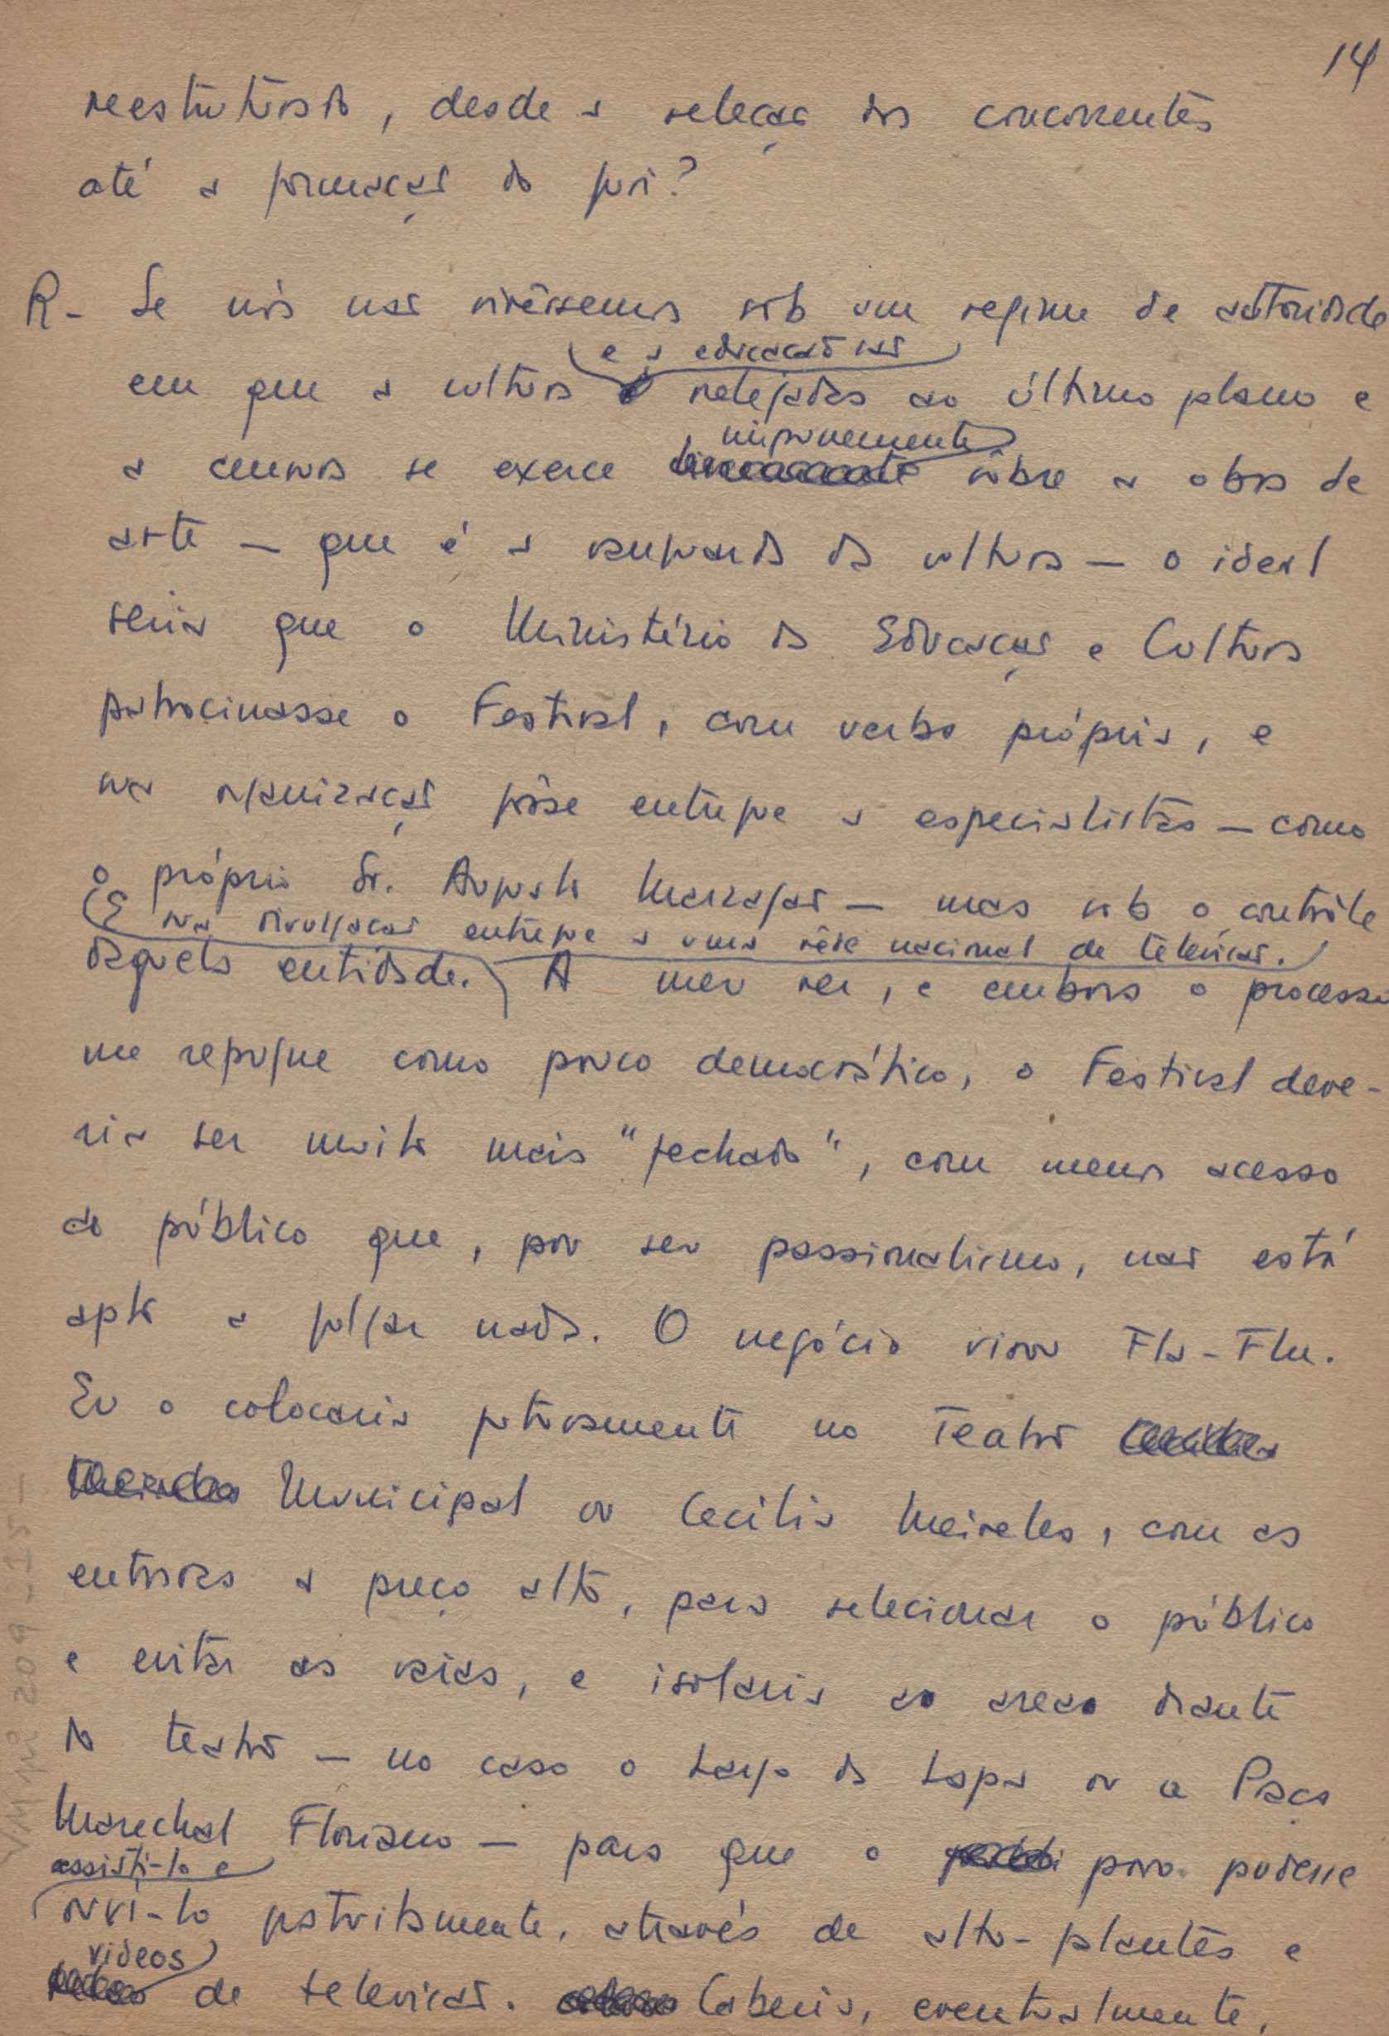 14
reestruturado, desde a seleção dos concorrentes
até a formação do juri?
R- Se nós não vivêssemos sob um regime de autoridade
e a educação são
em que a cultura relegadas ao último plano e
impunemente
a censura se exerce sôbre a obra de
arte — que é a vanguarda da cultura — o ideal
seria que o Ministério da Educação e Cultura
patrocinasse o Festival, com verba própria, e
na organização fôsse entregue a especialistas — como
o próprio Sr. Augusto Marzagão — mas sob o contrôle
E na divulgação entregue a uma rêde nacional de televisão.
daquela entidade. A meu ver, e embora o processo
me repugne como pouco democrático, o Festival deve-
ria ser muito mais "fechado", com menos acesso
do público que, por seu passionalismo, não está
apto a julgar nada. O negócio virou Fla-Flu.
Eu o colocaria futuramente no Teatro
Municipal ou Cecilia Meireles, com as
entradas a preço alto, para selecionar o público
e evitar as vaias, e isolaria as areas diante
do teatro — no caso o Largo da Lapa ou a Praça
Marechal Floriano — para que o povo pudesse
assistí-lo e
ouví-lo gratuitamente, através de alto-falantes e
videos
de televisão. Caberia, eventualmente,
VMMi 209-15-